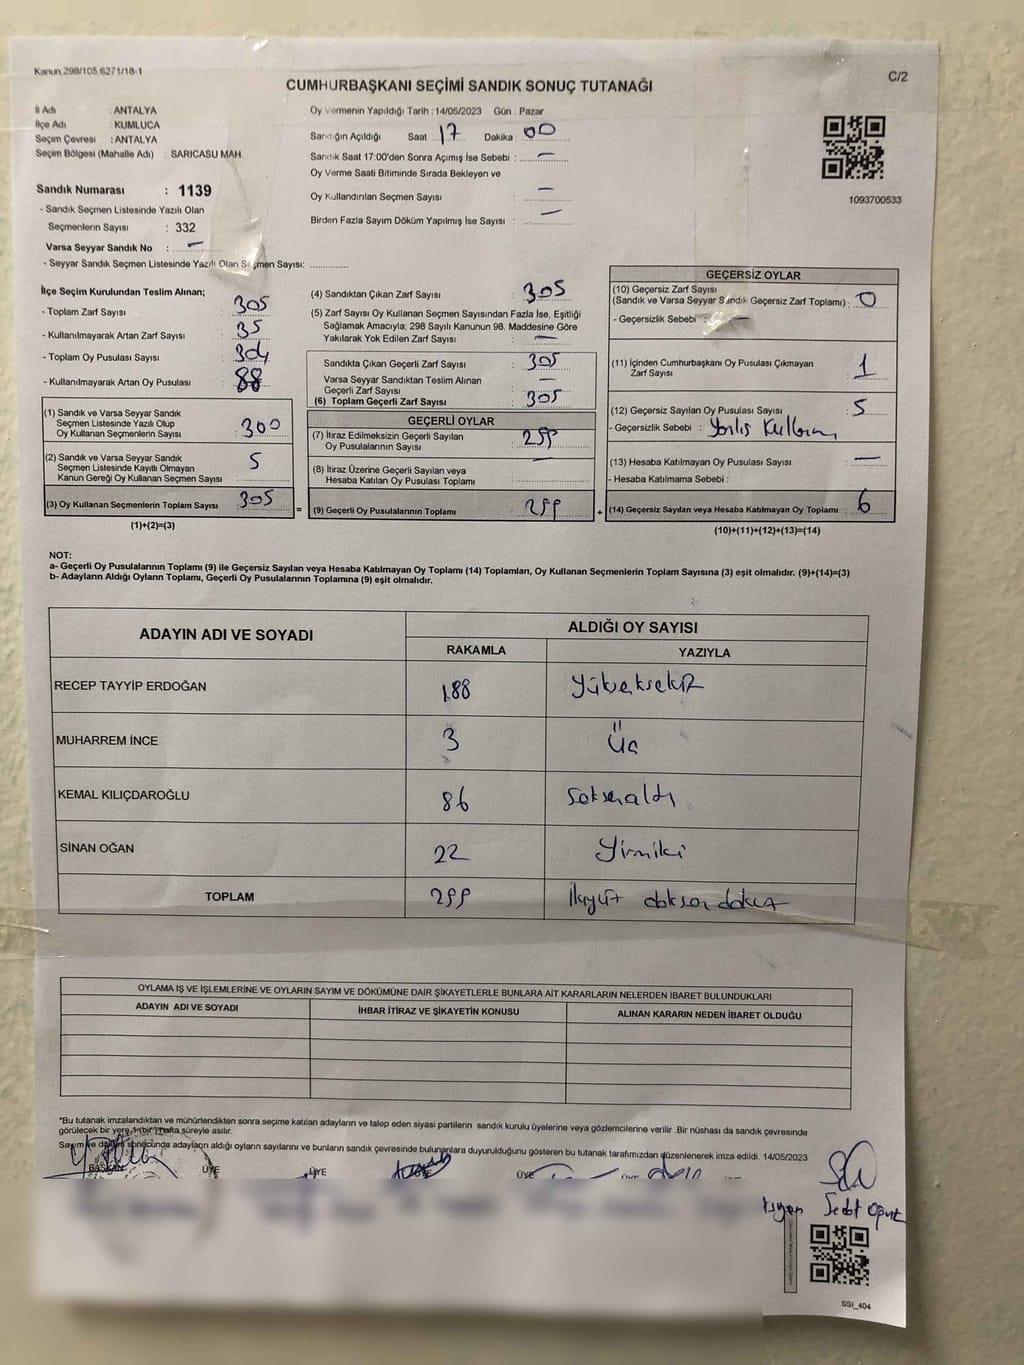 Kanun.298/105,6271/18-1
C/2
CUMHURBAŞKANI SEÇİMİ SANDIK SONUÇ TUTANAĞI
İl Adı : ANTALYA
İlçe Adı : KUMLUCA
Seçim Çevresi : ANTALYA
Seçim Bölgesi (Mahalle Adı) : SARICASU MAH.
Oy Vermenin Yapıldığı Tarih : 14/05/2023 Gün : Pazar
Sandığın Açıldığı Saat : 17 Dakika : 00
Sandık Saat 17:00'den Sonra Açımış İse Sebebi : —
Oy Verme Saati Bitiminde Sırada Bekleyen ve
Oy Kullandırılan Seçmen Sayısı : —
Birden Fazla Sayım Döküm Yapılmış İse Sayısı : —
1093700533
Sandık Numarası : 1139
- Sandık Seçmen Listesinde Yazılı Olan
Seçmenlerin Sayısı : 332
Varsa Seyyar Sandık No : —
- Seyyar Sandık Seçmen Listesinde Yazılı Olan Seçmen Sayısı: ..............
İlçe Seçim Kurulundan Teslim Alınan;
- Toplam Zarf Sayısı : 305
- Kullanılmayarak Artan Zarf Sayısı : 35
- Toplam Oy Pusulası Sayısı : 304
- Kullanılmayarak Artan Oy Pusulası : 88
(1) Sandık ve Varsa Seyyar Sandık
Seçmen Listesinde Yazılı Olup
Oy Kullanan Seçmenlerin Sayısı : 300
(2) Sandık ve Varsa Seyyar Sandık
Seçmen Listesinde Kayıtlı Olmayan
Kanun Gereği Oy Kullanan Seçmen Sayısı : 5
(3) Oy Kullanan Seçmenlerin Toplam Sayısı : 305
(1)+(2)=(3)
=
(4) Sandıktan Çıkan Zarf Sayısı : 305
(5) Zarf Sayısı Oy Kullanan Seçmen Sayısından Fazla İse, Eşitliği
Sağlamak Amacıyla; 298 Sayılı Kanunun 98. Maddesine Göre
Yakılarak Yok Edilen Zarf Sayısı : —
Sandıkta Çıkan Geçerli Zarf Sayısı : 305
Varsa Seyyar Sandıktan Teslim Alınan
Geçerli Zarf Sayısı : —
(6) Toplam Geçerli Zarf Sayısı : 305
GEÇERLİ OYLAR
(7) İtiraz Edilmeksizin Geçerli Sayılan
Oy Pusulalarının Sayısı : 299
(8) İtiraz Üzerine Geçerli Sayılan veya
Hesaba Katılan Oy Pusulası Toplamı : —
(9) Geçerli Oy Pusulalarının Toplamı : 299
+
GEÇERSİZ OYLAR
(10) Geçersiz Zarf Sayısı
(Sandık ve Varsa Seyyar Sandık Geçersiz Zarf Toplamı) : 0
- Geçersizlik Sebebi : —
(11) İçinden Cumhurbaşkanı Oy Pusulası Çıkmayan
Zarf Sayısı : 1
(12) Geçersiz Sayılan Oy Pusulası Sayısı : 5
- Geçersizlik Sebebi : Yanlış Kullanım
(13) Hesaba Katılmayan Oy Pusulası Sayısı : —
- Hesaba Katılmama Sebebi :
(14) Geçersiz Sayılan veya Hesaba Katılmayan Oy Toplamı : 6
(10)+(11)+(12)+(13)=(14)
NOT:
a- Geçerli Oy Pusulalarının Toplamı (9) ile Geçersiz Sayılan veya Hesaba Katılmayan Oy Toplamı (14) Toplamları, Oy Kullanan Seçmenlerin Toplam Sayısına (3) eşit olmalıdır. (9)+(14)=(3)
b- Adayların Aldığı Oyların Toplamı, Geçerli Oy Pusulalarının Toplamına (9) eşit olmalıdır.
ADAYIN ADI VE SOYADI ALDIĞI OY SAYISI
RAKAMLA YAZIYLA
RECEP TAYYİP ERDOĞAN 188 Yüzseksensekiz
MUHARREM İNCE 3 Üç
KEMAL KILIÇDAROĞLU 86 Seksenaltı
SİNAN OĞAN 22 Yirmiiki
TOPLAM 299 İkiyüz doksan dokuz
OYLAMA İŞ VE İŞLEMLERİNE VE OYLARIN SAYIM VE DÖKÜMÜNE DAİR ŞİKAYETLERLE BUNLARA AİT KARARLARIN NELERDEN İBARET BULUNDUKLARI
ADAYIN ADI VE SOYADI İHBAR İTİRAZ VE ŞİKAYETİN KONUSU ALINAN KARARIN NEDEN İBARET OLDUĞU
*Bu tutanak imzalandıktan ve mühürlendikten sonra seçime katılan adayların ve talep eden siyasi partilerin sandık kurulu üyelerine veya gözlemcilerine verilir. Bir nüshası da sandık çevresinde
görülecek bir yere 1 (bir) hafta süreyle asılır.
Sayım ve döküm sonucunda adayların aldığı oyların sayılarını ve bunların sandık çevresinde bulunanlara duyurulduğunu gösteren bu tutanak tarafımızdan düzenlenerek imza edildi. 14/05/2023
BAŞKAN ÜYE ÜYE ÜYE ÜYE ÜYE
Sedat
SSI_404